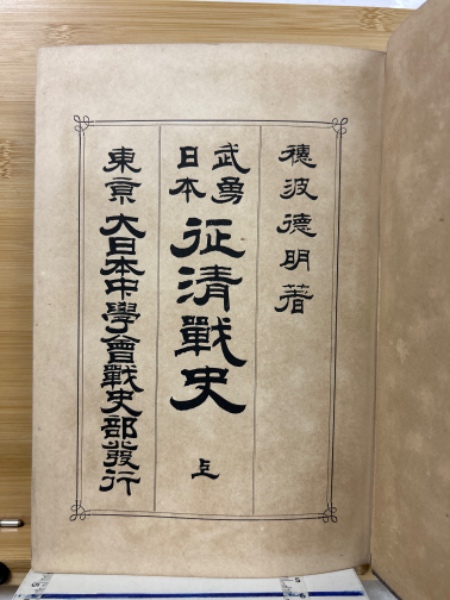 穂波德明著
武勇
日本
征淸戰史
上
東京大日本中學會戰史部發行